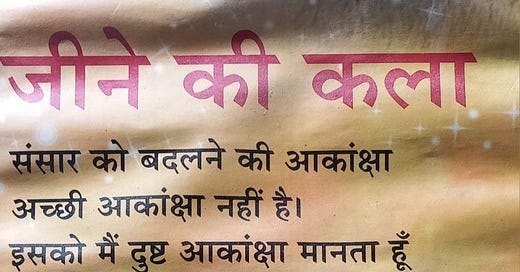 जीने की कला
संसार को बदलने की आकांक्षा
अच्छी आकांक्षा नहीं है।
इसको मैं दुष्ट आकांक्षा मानता हूँ